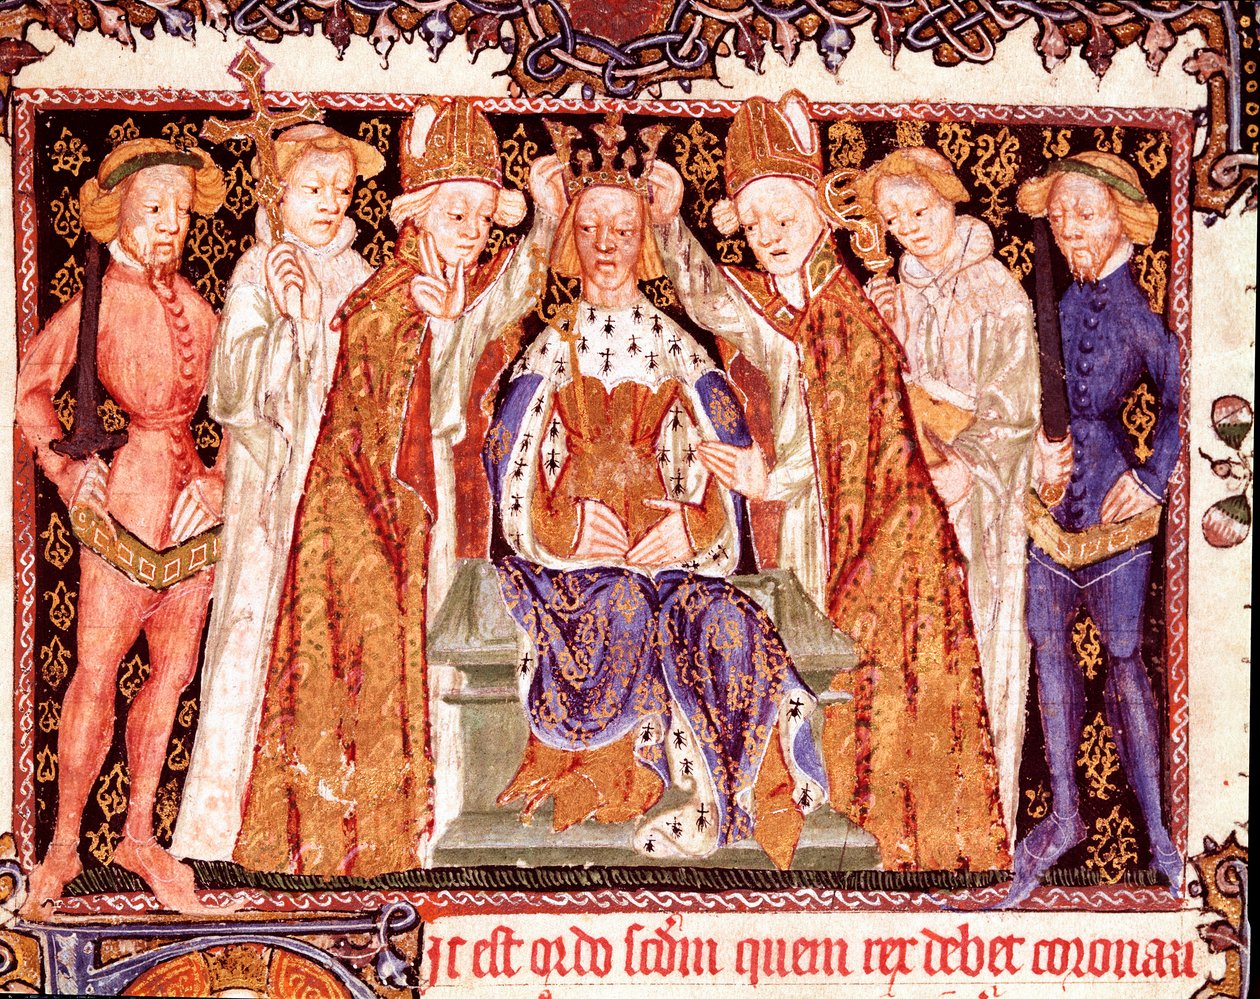 ic est ordo scd̄m quem rex debet coronari